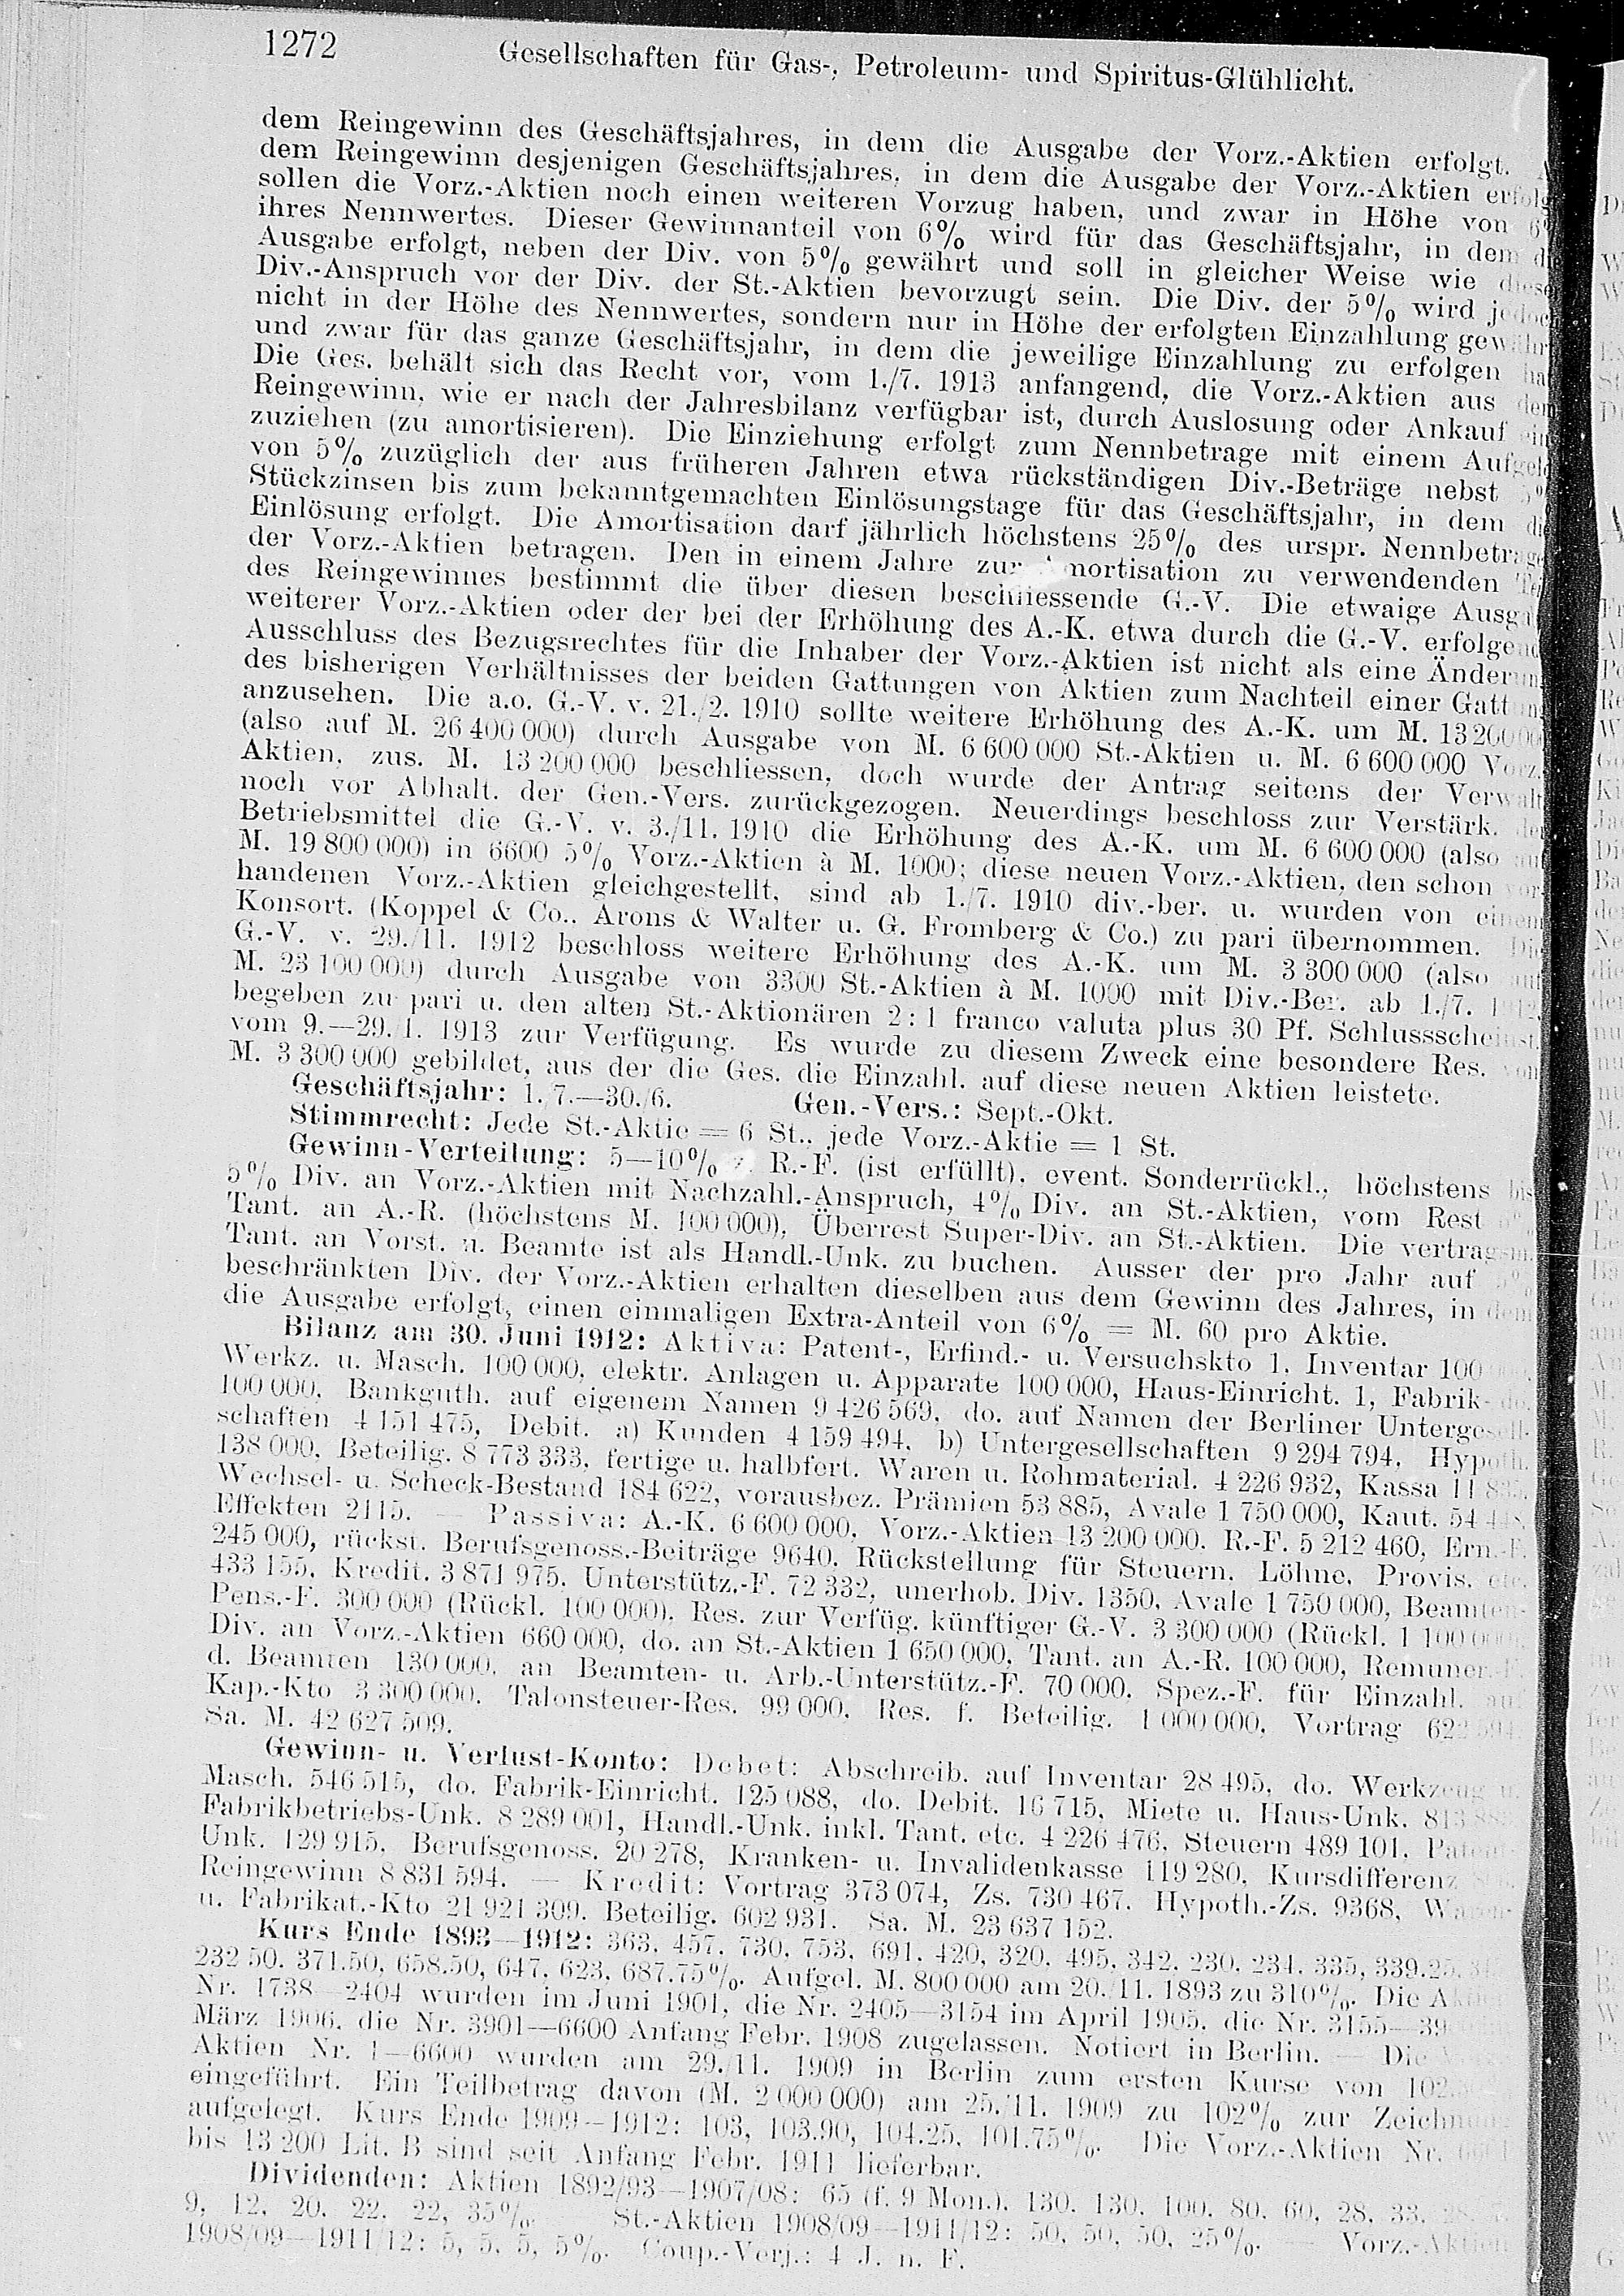 1272 Gesellschaften für Gas-, Petroleum- und Spiritus-Glühlicht.
dem Reingewinn des Geschäftsjahres, in dem die Ausgabe der Vorz.-Aktien erfolgt.
dem Reingewinn desjenigen Geschäftsjahres, in dem die Ausgabe der Vorz.-Aktien erfolg
sollen die Vorz.-Aktien noch einen weiteren Vorzug haben, und zwar in Höhe von 6%
ihres Nennwertes. Dieser Gewinnanteil von 6% wird für das Geschäftsjahr, in dem d
Ausgabe erfolgt, neben der Div. von 5% gewährt und soll in gleicher Weise wie diese
Div.-Anspruch vor der Div. der St.-Aktien bevorzugt sein. Die Div. der 5% wird jedoch
nicht in der Höhe des Nennwertes, sondern nur in Höhe der erfolgten Einzahlung gewähr
und zwar für das ganze Geschäftsjahr, in dem die jeweilige Einzahlung zu erfolgen ha
Die Ges. behält sich das Recht vor, vom 1./7. 1913 anfangend, die Vorz.-Aktien aus dem
Reingewinn, wie er nach der Jahresbilanz verfügbar ist, durch Auslosung oder Ankauf ein
zuziehen (zu amortisieren). Die Einziehung erfolgt zum Nennbetrage mit einem Aufgeld
von 5% zuzüglich der aus früheren Jahren etwa rückständigen Div.-Beträge nebst 5%
Stückzinsen bis zum bekanntgemachten Einlösungstage für das Geschäftsjahr, in dem di
Einlösung erfolgt. Die Amortisation darf jährlich höchstens 25% des urspr. Nennbetrage
der Vorz.-Aktien betragen. Den in einem Jahre zur Amortisation zu verwendenden Tei
des Reingewinnes bestimmt die über diesen beschliessende G.-V. Die etwaige Ausga
weiterer Vorz.-Aktien oder der bei der Erhöhung des A.-K. etwa durch die G.-V. erfolgend
Ausschluss des Bezugsrechtes für die Inhaber der Vorz.-Aktien ist nicht als eine Änderun
des bisherigen Verhältnisses der beiden Gattungen von Aktien zum Nachteil einer Gattung
anzusehen. Die a.o. G.-V. v. 21./2. 1910 sollte weitere Erhöhung des A.-K. um M. 13 200 000
(also auf M. 26 400 000) durch Ausgabe von M. 6 600 000 St.-Aktien u. M. 6 600 000 Vorz.
Aktien, zus. M. 13 200 000 beschliessen, doch wurde der Antrag seitens der Verwalt
noch vor Abhalt. der Gen.-Vers. zurückgezogen. Neuerdings beschloss zur Verstärk. der
Betriebsmittel die G.-V. v. 3./11. 1910 die Erhöhung des A.-K. um M. 6 600 000 (also auf
M. 19 800 000) in 6600 5% Vorz.-Aktien à M. 1000; diese neuen Vorz.-Aktien, den schon vor
handenen Vorz.-Aktien gleichgestellt, sind ab 1./7. 1910 div.-ber. u. wurden von einem
Konsort. (Koppel & Co., Arons & Walter u. G. Fromberg & Co.) zu pari übernommen. Die
G.-V. v. 29./11. 1912 beschloss weitere Erhöhung des A.-K. um M. 3 300 000 (also auf
M. 23 100 000) durch Ausgabe von 3300 St.-Aktien à M. 1000 mit Div.-Ber. ab 1./7. 1912,
begeben zu pari u. den alten St.-Aktionären 2 : 1 franco valuta plus 30 Pf. Schlussscheinst.
vom 9.—29./1. 1913 zur Verfügung. Es wurde zu diesem Zweck eine besondere Res. von
M. 3 300 000 gebildet, aus der die Ges. die Einzahl. auf diese neuen Aktien leistete.
Geschäftsjahr: 1./7.—30./6. Gen.-Vers.: Sept.-Okt.
Stimmrecht: Jede St.-Aktie = 6 St., jede Vorz.-Aktie = 1 St.
Gewinn-Verteilung: 5—10% z. R.-F. (ist erfüllt), event. Sonderrückl., höchstens bis
5% Div. an Vorz.-Aktien mit Nachzahl.-Anspruch, 4% Div. an St.-Aktien, vom Rest
Tant. an A.-R. (höchstens M. 100 000), Überrest Super-Div. an St.-Aktien. Die vertragsm.
Tant. an Vorst. u. Beamte ist als Handl.-Unk. zu buchen. Ausser der pro Jahr auf 5%
beschränkten Div. der Vorz.-Aktien erhalten dieselben aus dem Gewinn des Jahres, in dem
die Ausgabe erfolgt, einen einmaligen Extra-Anteil von 6% = M. 60 pro Aktie.
Bilanz am 30. Juni 1912: Aktiva: Patent-, Erfind.- u. Versuchskto 1, Inventar 100
Werkz. u. Masch. 100 000, elektr. Anlagen u. Apparate 100 000, Haus-Einricht. 1, Fabrik- do.
100 000, Bankguth. auf eigenem Namen 9 426 569, do. auf Namen der Berliner Untergesell-
schaften 4 151 475, Debit. a) Kunden 4 159 494, b) Untergesellschaften 9 294 794, Hypoth.
138 000, Beteilig. 8 773 333, fertige u. halbfert. Waren u. Rohmaterial. 4 226 932, Kassa 11 835,
Wechsel- u. Scheck-Bestand 184 622, vorausbez. Prämien 53 885, Avale 1 750 000, Kaut. 54 448,
Effekten 2115. — Passiva: A.-K. 6 600 000, Vorz.-Aktien 13 200 000, R.-F. 5 212 460, Ern.-F.
245 000, rückst. Berufsgenoss.-Beiträge 9640, Rückstellung für Steuern, Löhne, Provis. etc.
433 155, Kredit. 3 871 975, Unterstütz.-F. 72 332, unerhob. Div. 1350, Avale 1 750 000, Beamten-
Pens.-F. 300 000 (Rückl. 100 000), Res. zur Verfüg. künftiger G.-V. 3 300 000 (Rückl. 1 100 000),
Div. an Vorz.-Aktien 660 000, do. an St.-Aktien 1 650 000, Tant. an A.-R. 100 000, Remuner.-F.
d. Beamten 130 000, an Beamten- u. Arb.-Unterstütz.-F. 70 000, Spez.-F. für Einzahl. auf
Kap.-Kto 3 300 000, Talonsteuer-Res. 99 000, Res. f. Beteilig. 1 000 000, Vortrag 622 594.
Sa. M. 42 627 509.
Gewinn- u. Verlust-Konto: Debet: Abschreib. auf Inventar 28 495, do. Werkzeug u.
Masch. 546 515, do. Fabrik-Einricht. 125 088, do. Debit. 16 715, Miete u. Haus-Unk. 813
Fabrikbetriebs-Unk. 8 289 001, Handl.-Unk. inkl. Tant. etc. 4 226 476, Steuern 489 101, Patent-
Unk. 129 915, Berufsgenoss. 20 278, Kranken- u. Invalidenkasse 119 280, Kursdifferenz
Reingewinn 8 831 594. — Kredit: Vortrag 373 074, Zs. 730 467, Hypoth.-Zs. 9368, Waren-
u. Fabrikat.-Kto 21 921 309, Beteilig. 602 931. Sa. M. 23 637 152.
Kurs Ende 1893—1912: 363, 457, 730, 753, 691, 420, 320, 495, 342, 230, 234, 335, 339.25,
232.50, 371.50, 658.50, 647, 623, 687.75%. Aufgel. M. 800 000 am 20./11. 1893 zu 310%. Die Aktien
Nr. 1738—2404 wurden im Juni 1901, die Nr. 2405—3154 im April 1905, die Nr. 3155—39
März 1906, die Nr. 3901—6600 Anfang Febr. 1908 zugelassen. Notiert in Berlin. — Die
Aktien Nr. 1—6600 wurden am 29./11. 1909 in Berlin zum ersten Kurse von 102.
eingeführt. Ein Teilbetrag davon (M. 2 000 000) am 25./11. 1909 zu 102% zur Zeichnung
aufgelegt. Kurs Ende 1909—1912: 103, 103.90, 104.25, 101.75%. Die Vorz.-Aktien Nr.
bis 13 200 Lit. B sind seit Anfang Febr. 1911 lieferbar.
Dividenden: Aktien 1892/93—1907/08: 65 (f. 9 Mon.), 130, 130, 100, 80, 60, 28, 33,
9, 12, 20, 22, 22, 35%. St.-Aktien 1908/09—1911/12: 50, 50, 50, 25%. — Vorz.-Aktien
1908/09—1911/12: 5, 5, 5, 5%. Coup.-Verj.: 4 J. n. F.